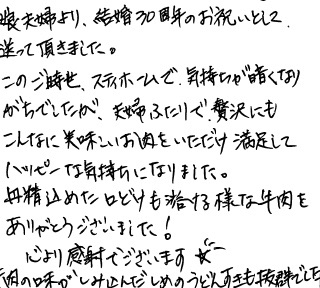 娘夫婦より、結婚30周年のお祝いとして
送って頂きました。
このご時世、ステイホームで、気持ちが暗くなり
がちでしたが、夫婦ふたりで、贅沢にも
こんなに美味しいお肉をいただけ満足して
ハッピーな気持ちになりました。
丹精込めた口どけも溶ける様な牛肉を
ありがとうございました!
心より感謝でございます
肉の味がしみ込んだしめのうどんすきも抜群でした